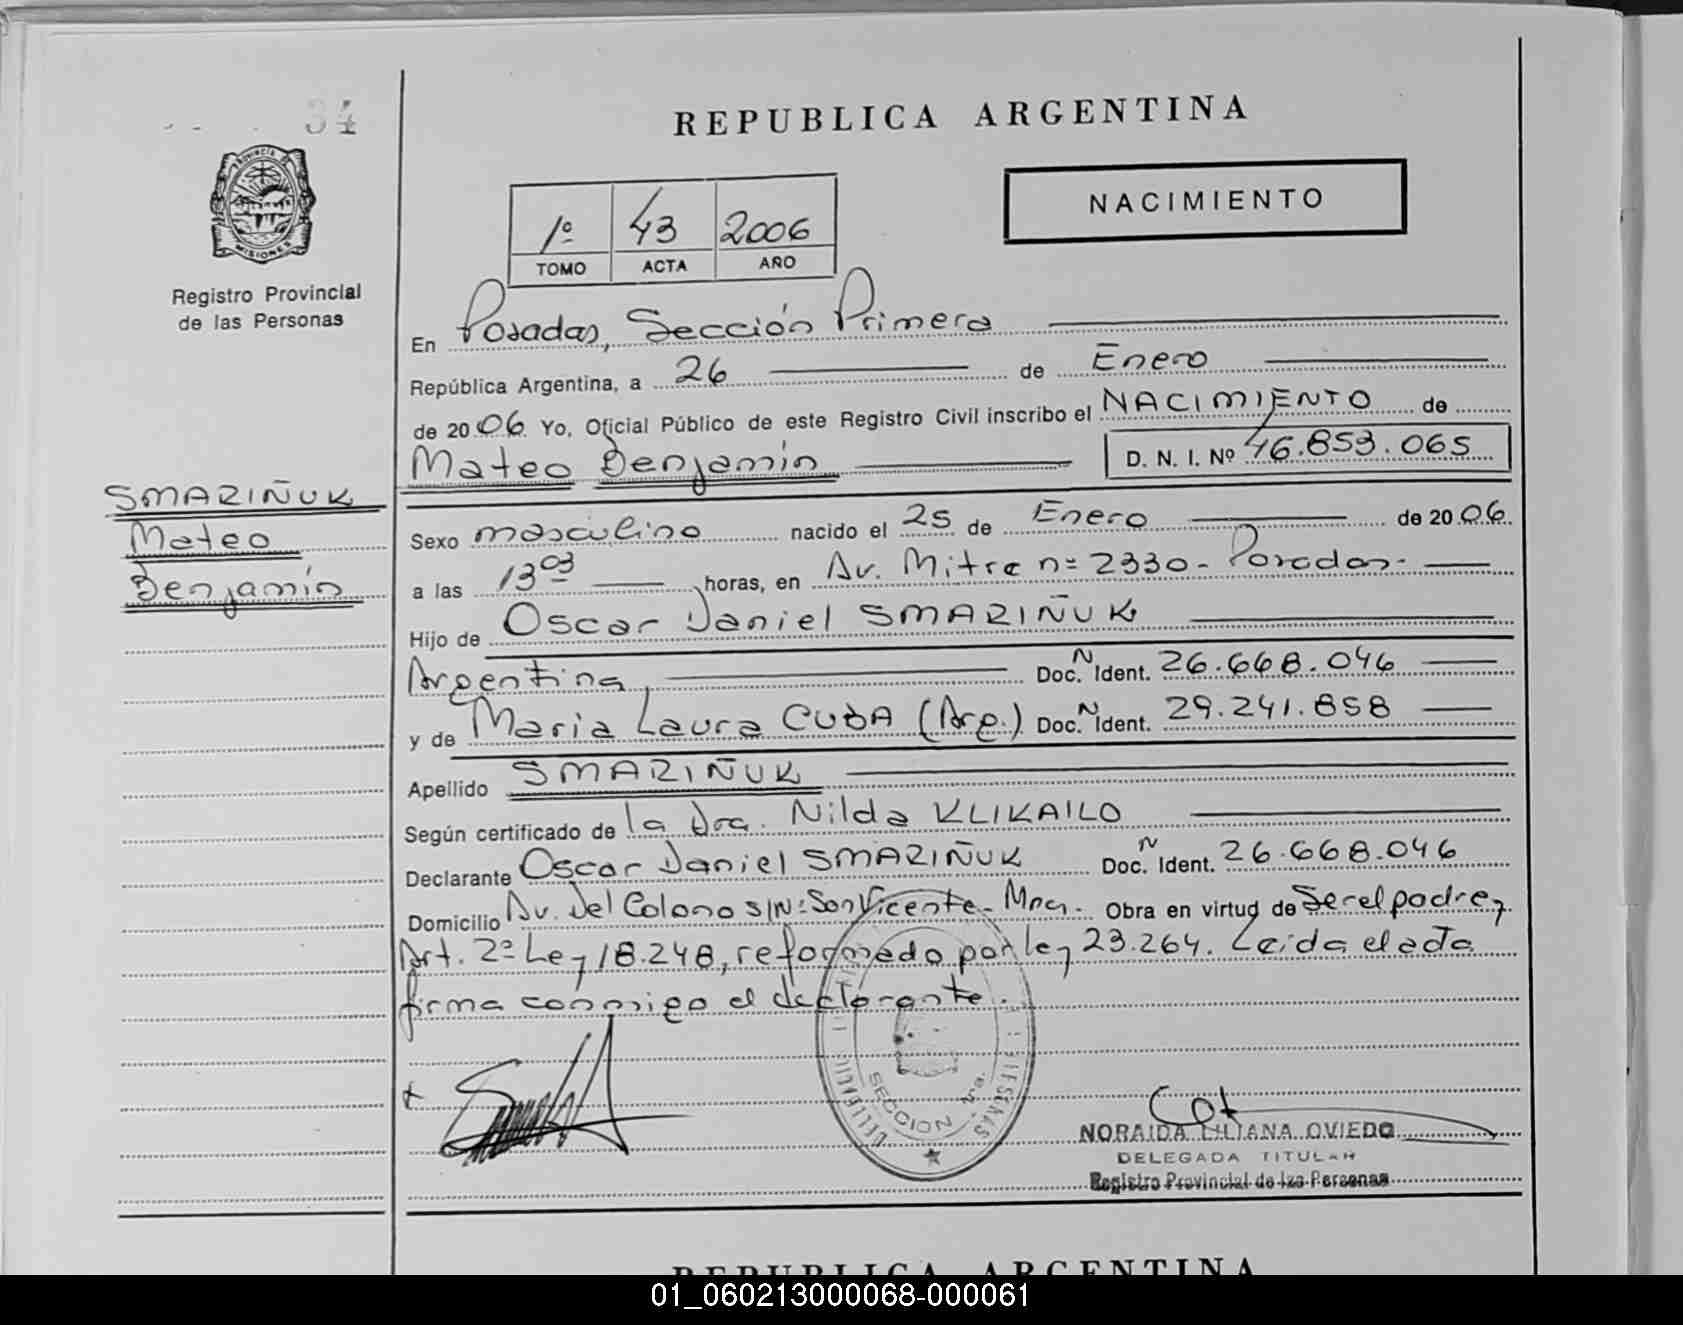 34
PROVINCIA DE
MISIONES
Registro Provincial
de las Personas
SMARIÑUK
Mateo
Benjamín
REPUBLICA ARGENTINA
1º 43 2006
TOMO ACTA AÑO
NACIMIENTO
En Posadas, Sección Primera
República Argentina, a 26 de Enero
de 2006 Yo, Oficial Público de este Registro Civil inscribo el NACIMIENTO de
Mateo Benjamín D. N. I. Nº 46.853.065
Sexo masculino nacido el 25 de Enero de 2006.
a las 13 03 horas, en Av. Mitre nº 2330 - Posadas-
Hijo de Oscar Daniel SMARIÑUK
Argentina, Doc. N Ident. 26.668.046
y de Maria Laura CUBA (Arg.) Doc. N Ident. 29.241.858
Apellido SMARIÑUK
Según certificado de la Dra. Nilda KLIKAILO
Declarante Oscar Daniel SMARIÑUK Doc. N Ident. 26.668.046
Domicilio Av. Del Colono S/Nº San Vicente - Mnes. Obra en virtud de Ser el padre y
Art. 2º Ley 18.248, reformado por ley 23.264. Leida el acta
firma conmigo el declarante.
SECCION 1ra.
NORAIDA LILIANA OVIEDO
DELEGADA TITULAR
Registro Provincial de las Personas
REPUBLICA ARGENTINA
01_060213000068-000061